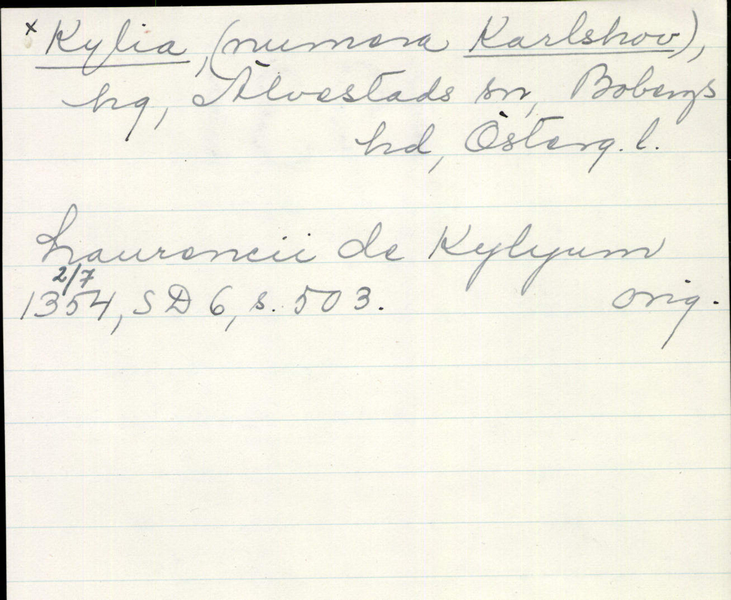 x Kylia, (numera Karlshov),
hg, Älvestads sn, Bobergs
hd, Österg. l.
Laurencii de Kylyum
2/7
1354, SD 6, s. 503. orig.